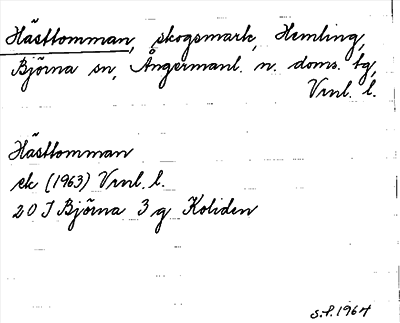 Hästtomman, skogsmark, Hemling,
Björna sn, Ångermanl. n. doms. fg,
Vrnl. l.
Hästtomman
ek (1963) Vrnl. l.
20 J Björna 3 g Koliden
S.F. 1964